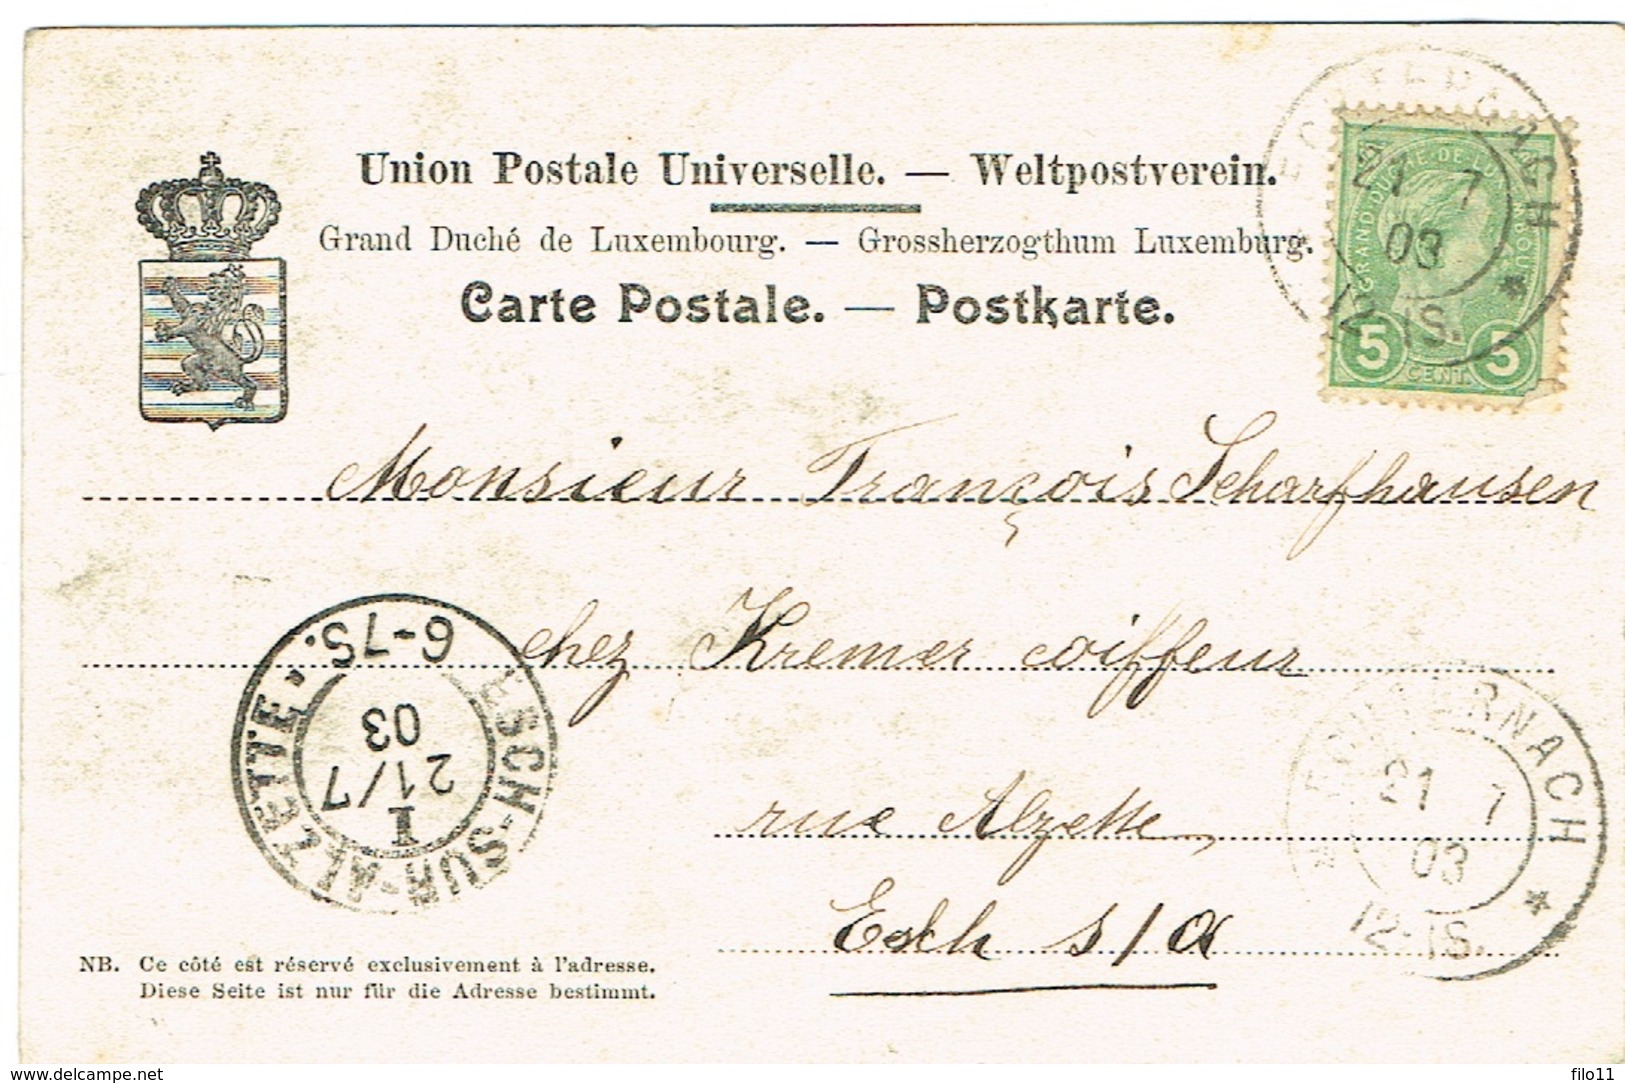 Union Postale Universelle. — Weltpostverein.
Grand Duché de Luxembourg. — Grossherzogthum Luxemburg.
Carte Postale. — Postkarte.
ECHTERNACH
21 7
03
12-1S.
GRAND-DUCHÉ DE LUXEMBOURG
5 CENT. 5
Monsieur François Scharfhausen
chez Kremer coiffeur
rue Alzette
Esch s/a
ESCH-SUR-ALZETTE
I
21/7
03
6-7S.
ECHTERNACH
21 7
03
12-1S.
NB. Ce côté est réservé exclusivement à l'adresse.
Diese Seite ist nur für die Adresse bestimmt.
www.delcampe.net
filo11